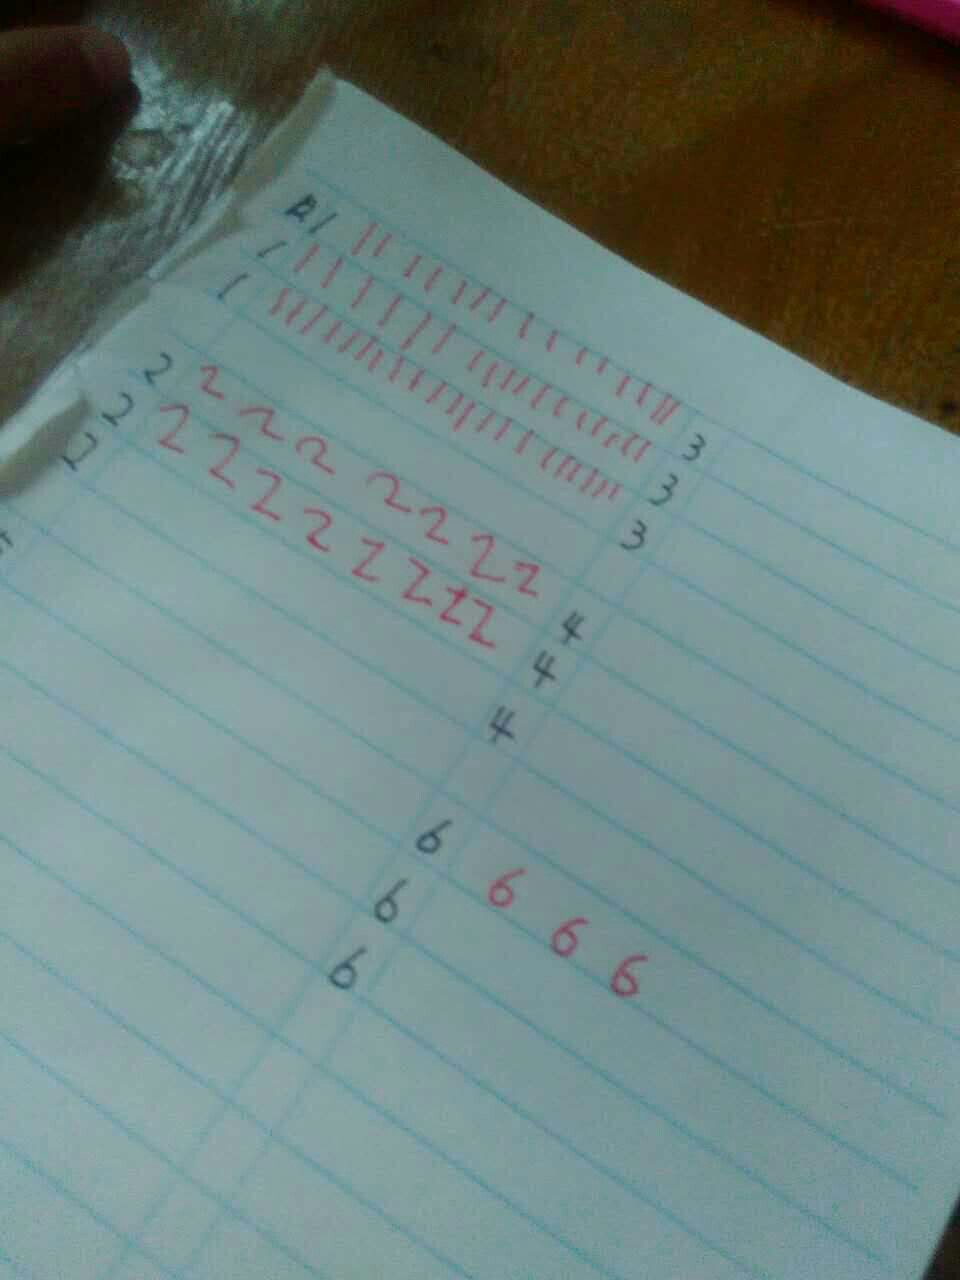 1 1 1 1 1 1 1 1 1 1 1 1 1 1 1 1 1 1 3
1 1 1 1 1 1 1 1 1 1 1 1 1 1 1 1 1 1 1 1 1 3
1 1 1 1 1 1 1 1 1 1 1 1 1 1 1 1 1 1 1 1 1 1 1 1 1 1 3
2 2 2 2 2 2 2 2 4
2 2 2 2 2 2 2 2 2 4
2 4
6 6 6 6
6
6